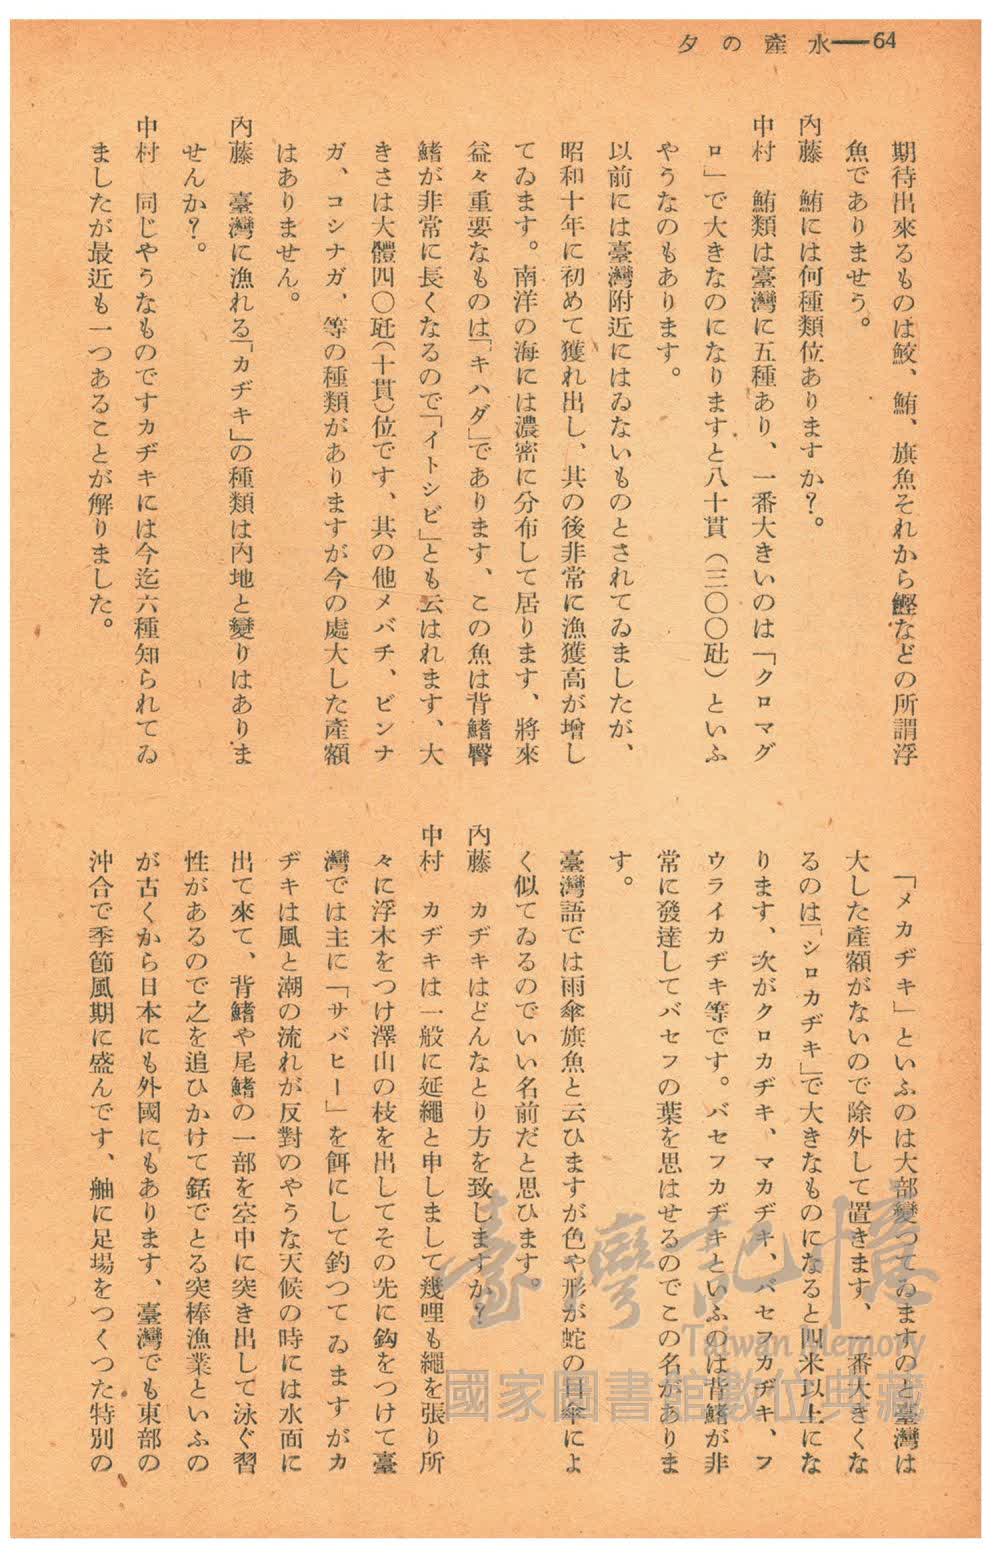 64―水產の夕
期待出來るものは鮫、鮪、旗魚それから鰹などの所謂浮
魚でありませう。
內藤　鮪には何種類位ありますか?。
中村　鮪類は臺灣に五種あり、一番大きいのは「クロマグ
ロ」で大きなのになりますと八十貫（三〇〇瓩）といふ
やうなのもあります。
以前には臺灣附近にはゐないものとされてゐましたが、
昭和十年に初めて獲れ出し、其の後非常に漁獲高が增し
てゐます。南洋の海には濃密に分布して居ります、將來
益々重要なものは「キハダ」であります、この魚は背鰭臀
鰭が非常に長くなるので「イトシビ」とも云はれます、大
きさは大體四〇瓩(十貫)位です、其の他メバチ、ビンナ
ガ、コシナガ、等の種類がありますが今の處大した產額
はありません。
內藤　臺灣に漁れる「カヂキ」の種類は內地と變りはありま
せんか?。
中村　同じやうなものですカヂキには今迄六種知られてゐ
ましたが最近も一つあることが解りました。
「メカヂキ」といふのは大部變つてゐますのと臺灣は
大した產額がないので除外して置きます、一番大きくな
るのは「シロカヂキ」で大きなものになると四米以上にな
ります、次がクロカヂキ、マカヂキ、バセフカヂキ、フ
ウライカヂキ等です。バセフカヂキといふのは背鰭が非
常に發達してバセフの葉を思はせるのでこの名がありま
す。
臺灣語では雨傘旗魚と云ひますが色や形が蛇の目傘によ
く似てゐるのでいい名前だと思ひます。
內藤　カヂキはどんなとり方を致しますか?
中村　カヂキは一般に延繩と申しまして幾哩も繩を張り所
々に浮木をつけ澤山の枝を出してその先に鈎をつけて臺
灣では主に「サバヒー」を餌にして釣つてゐますがカ
ヂキは風と潮の流れが反對のやうな天候の時には水面に
出て來て、背鰭や尾鰭の一部を空中に突き出して泳ぐ習
性があるので之を追ひかけて銛でとる突棒漁業といふの
が古くから日本にも外國にもあります、臺灣でも東部の
沖合で季節風期に盛んです、舳に足場をつくつた特別の
臺灣記憶
Taiwan Memory
國家圖書館數位典藏